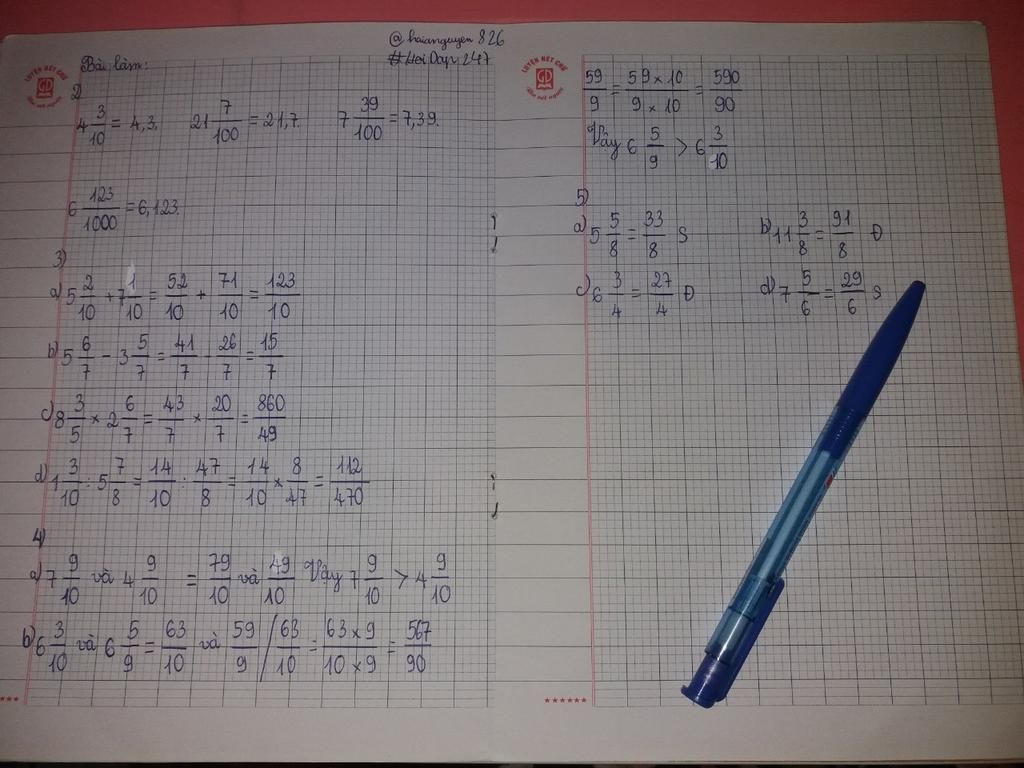 @hoianguyen826
#HoiDap247
LUYỆN NÉT CHỮ
Rèn nết người
Bài làm:
2)
4 3/10 = 4,3. 21 7/100 = 21,7. 7 39/100 = 7,39.
6 123/1000 = 6,123.
3)
a) 5 2/10 + 7 1/10 = 52/10 + 71/10 = 123/10
b) 5 6/7 - 3 5/7 = 41/7 - 26/7 = 15/7
c) 8 3/5 × 2 6/7 = 43/7 × 20/7 = 860/49
d) 1 3/10 : 5 7/8 = 14/10 : 47/8 = 14/10 × 8/47 = 112/470
4)
a) 7 9/10 và 4 9/10 = 79/10 và 49/10 Vậy 7 9/10 > 4 9/10
b) 6 3/10 và 6 5/9 = 63/10 và 59/9 / 63/10 = 63×9/10×9 = 567/90
LUYỆN NÉT CHỮ
Rèn nết người
59/9 = 59×10/9×10 = 590/90
Vậy 6 5/9 > 6 3/10
5)
a) 5 5/8 = 33/8 S b) 11 3/8 = 91/8 Đ
c) 6 3/4 = 27/4 Đ d) 7 5/6 = 29/6 S